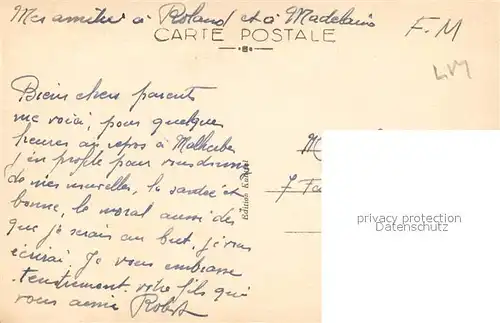 Mes amitiés à Roland et à Madelaine
F.M
CARTE POSTALE
Biens chers parents
me voici, pour quelques
heures au repos à
j'en profite pour vous donner
de mes nouvelles, la santée est
bonne, le moral aussi dès
que je serais au but, j'vous
écrirai. Je vous embrasse
tendrement votre fils qui
vous aime Robert
M
7 Fa
privacy protection
©ansichtskartenhandel.de